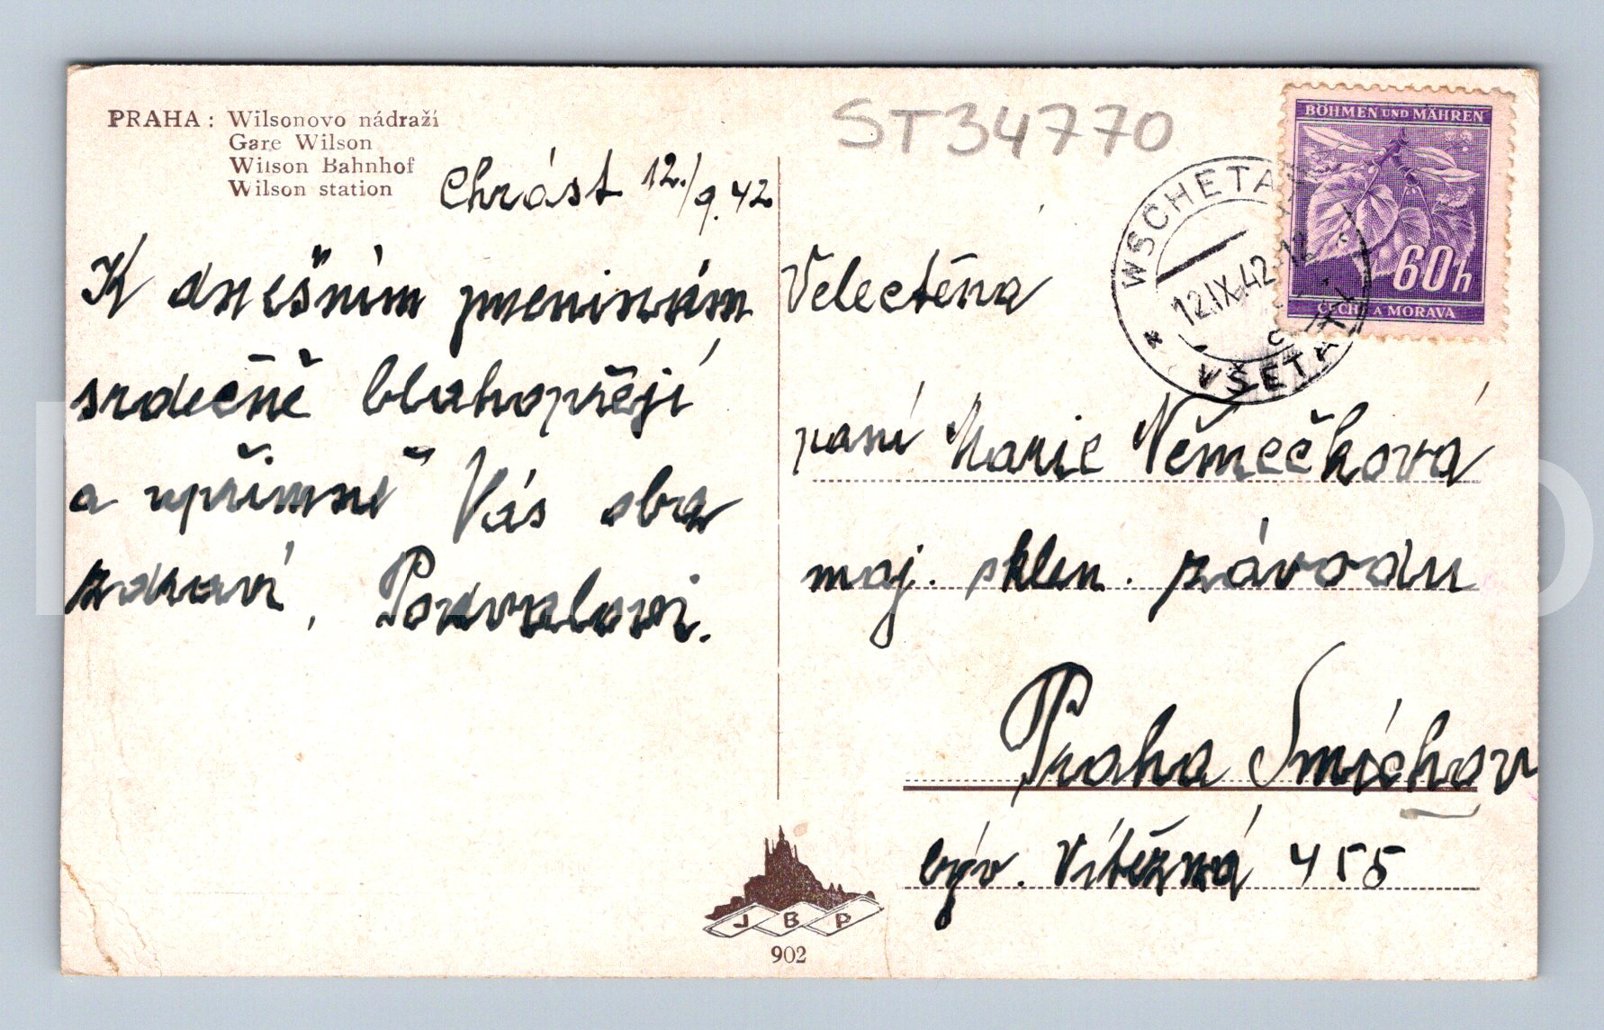 PRAHA: Wilsonovo nádraží
Gare Wilson
Wilson Bahnhof
Wilson station
Chrást 12./9.42
K dnešním jmeninám
srdečně blahopřejí
a upřimně Vás oba
zdraví, Pozvalovi.
ST34770
BÖHMEN UND MÄHREN
60h
ČECHY A MORAVA
WSCHETA
12.IX.42
VŠETATY
Velectěná
paní Marie Němečková
maj. sklen. závodu
Praha Smíchov
býv. Vítězná 455
JBP
902